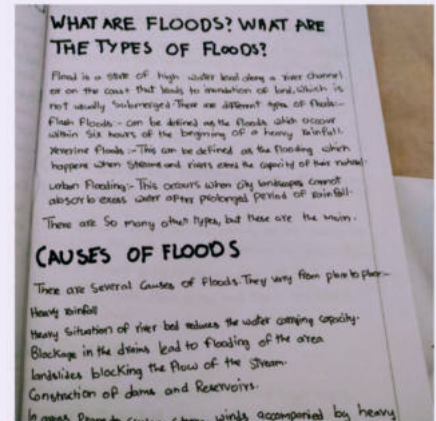 WHAT ARE FLOODS? WHAT ARE
THE TYPES OF FLOODS?
Flood is a state of high water level along a river channel
or on the coast that leads to inundation of land, which is
not usually submerged. There are different types of floods:-
Flash Floods:- Can be defined as the floods which occour
within six hours of the begining of a heavy rainfall.
Riverine Floods:- This can be defined as the flooding which
happens when Streams and rivers exces the capacity of their natural.
urban Flooding:- This occurs when city landscapes cannot
absorb exess water after prolonged period of rainfall.
There are So many other types, but these are the main.
CAUSES OF FLOODS
There are Several Causes of Floods. They vary from place to place:-
Heavy rainfall
Heavy Situation of river bed reduces the water carrying capacity.
Blockage in the drains lead to flooding of the area
landslides blocking the flow of the Stream.
Construction of dams and Reservoirs.
In areas Prone to winds accompanied by heavy